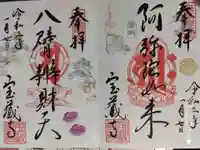 奉拝
八臂辨財天
令和二年
一月廿日
宝蔵寺
奉拝
阿弥陀如来
令和二年
一月廿日
宝蔵寺